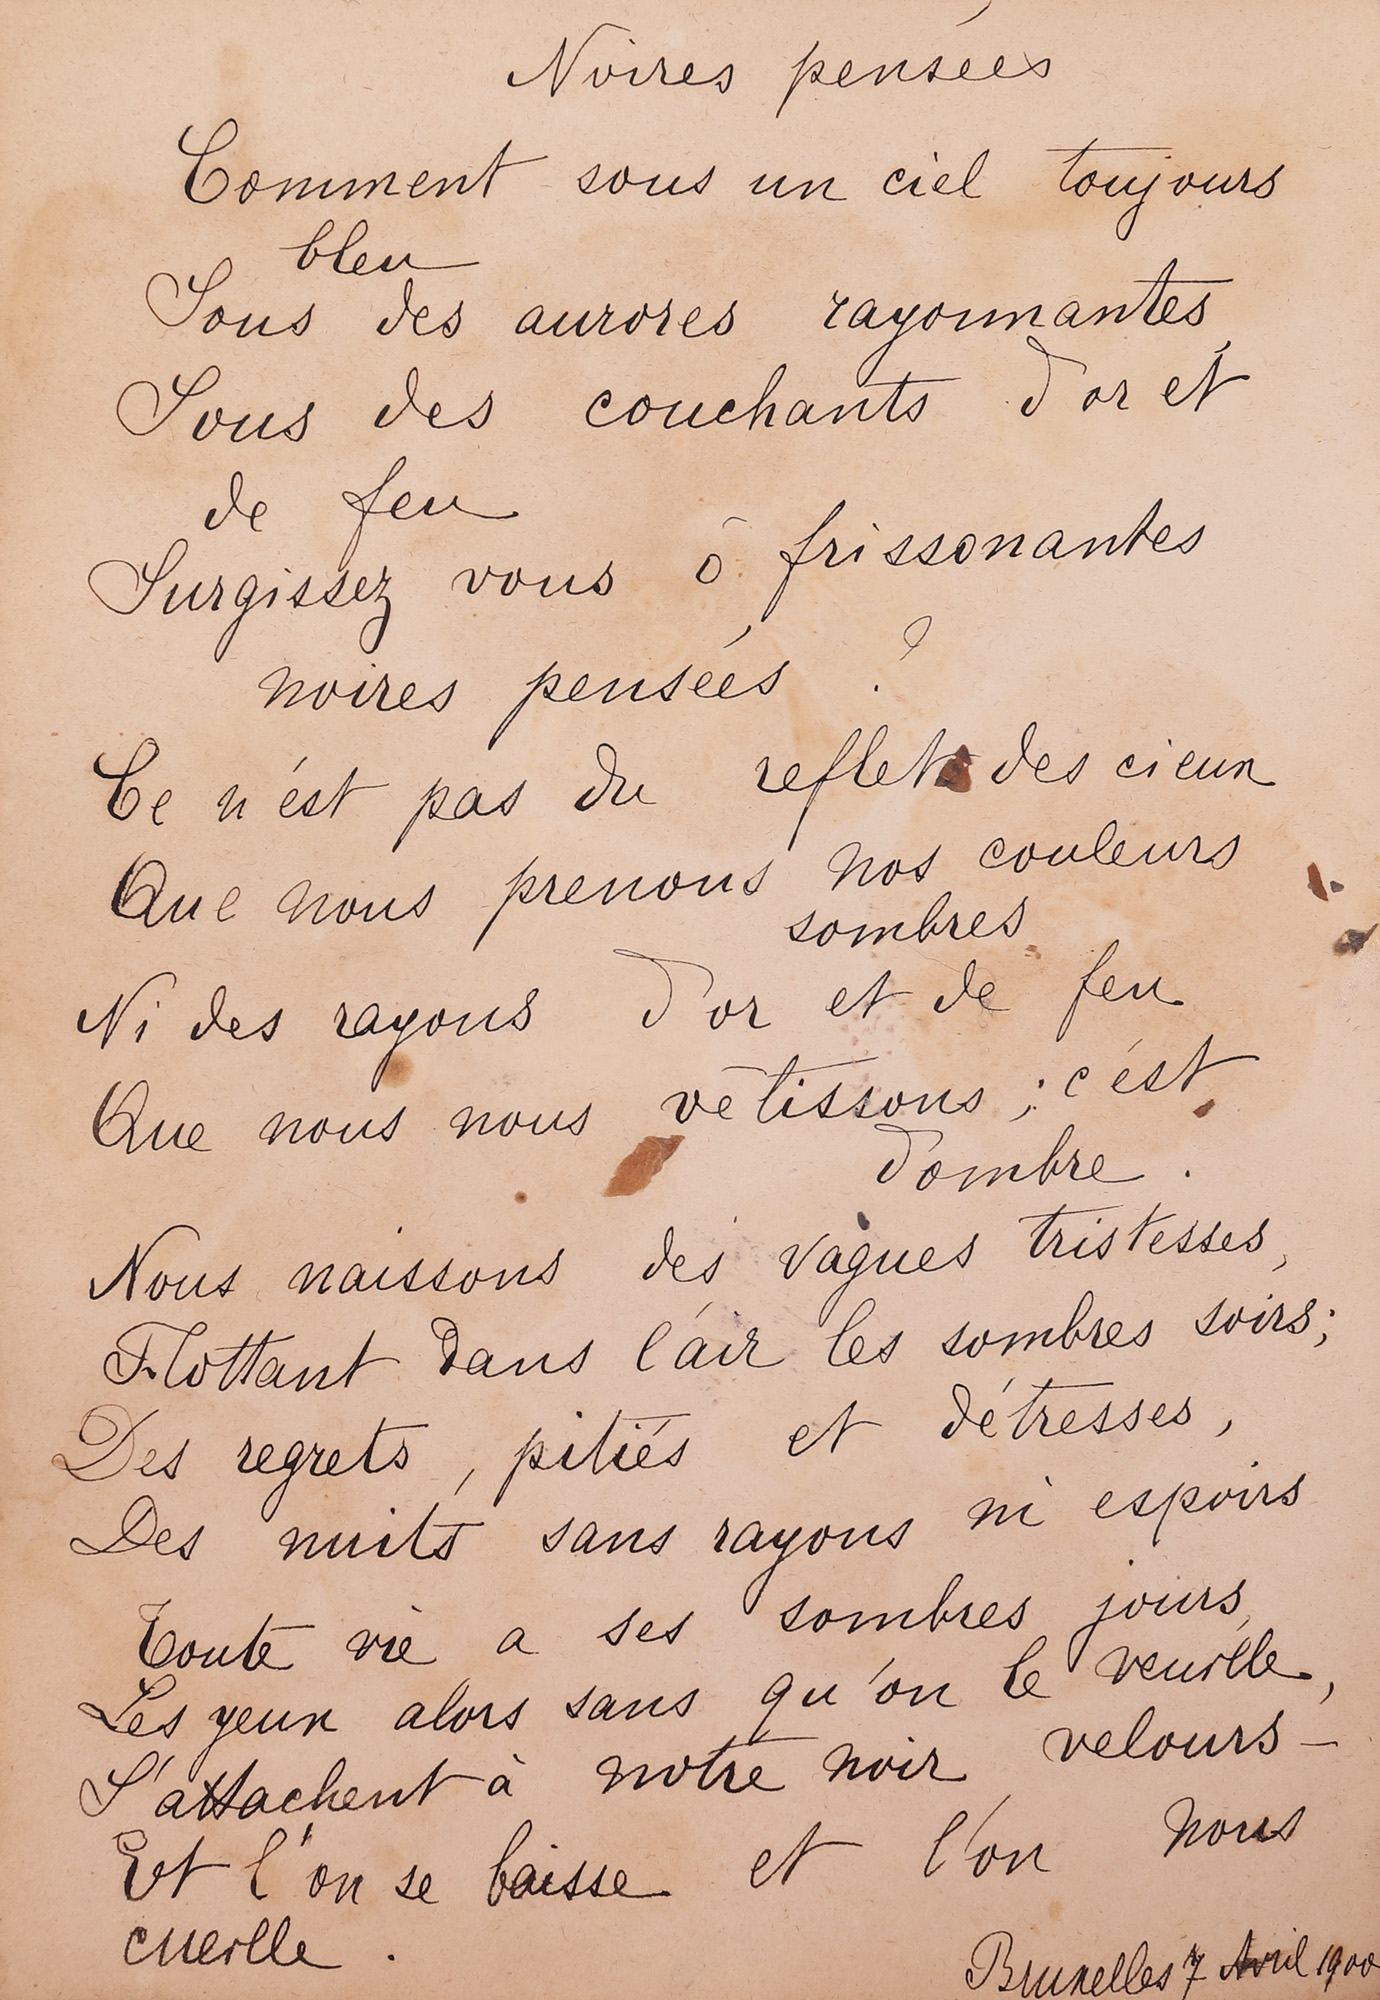 Noires pensées
Comment sous un ciel toujours
bleu
Sous des aurores rayonnantes,
Sous des couchants d'or et
de feu
Surgissez vous ô frissonantes
noires pensées ?
Ce n'est pas du reflet des cieux
Que nous prenons nos couleurs
sombres
Ni des rayons d'or et de feu
Que nous nous vêtissons ; c'est
d'ombre .
Nous naissons des vagues tristesses,
Flottant dans l'air les sombres soirs;
Des regrets, pitiés et détresses,
Des nuits sans rayons ni espoirs
Toute vie a ses sombres jours,
Les yeux alors sans qu'on le veuille,
S'attachent à notre noir velours -
Et l'on se baisse et l'on nous
cueille .
Bruxelles 7 Avril 1900